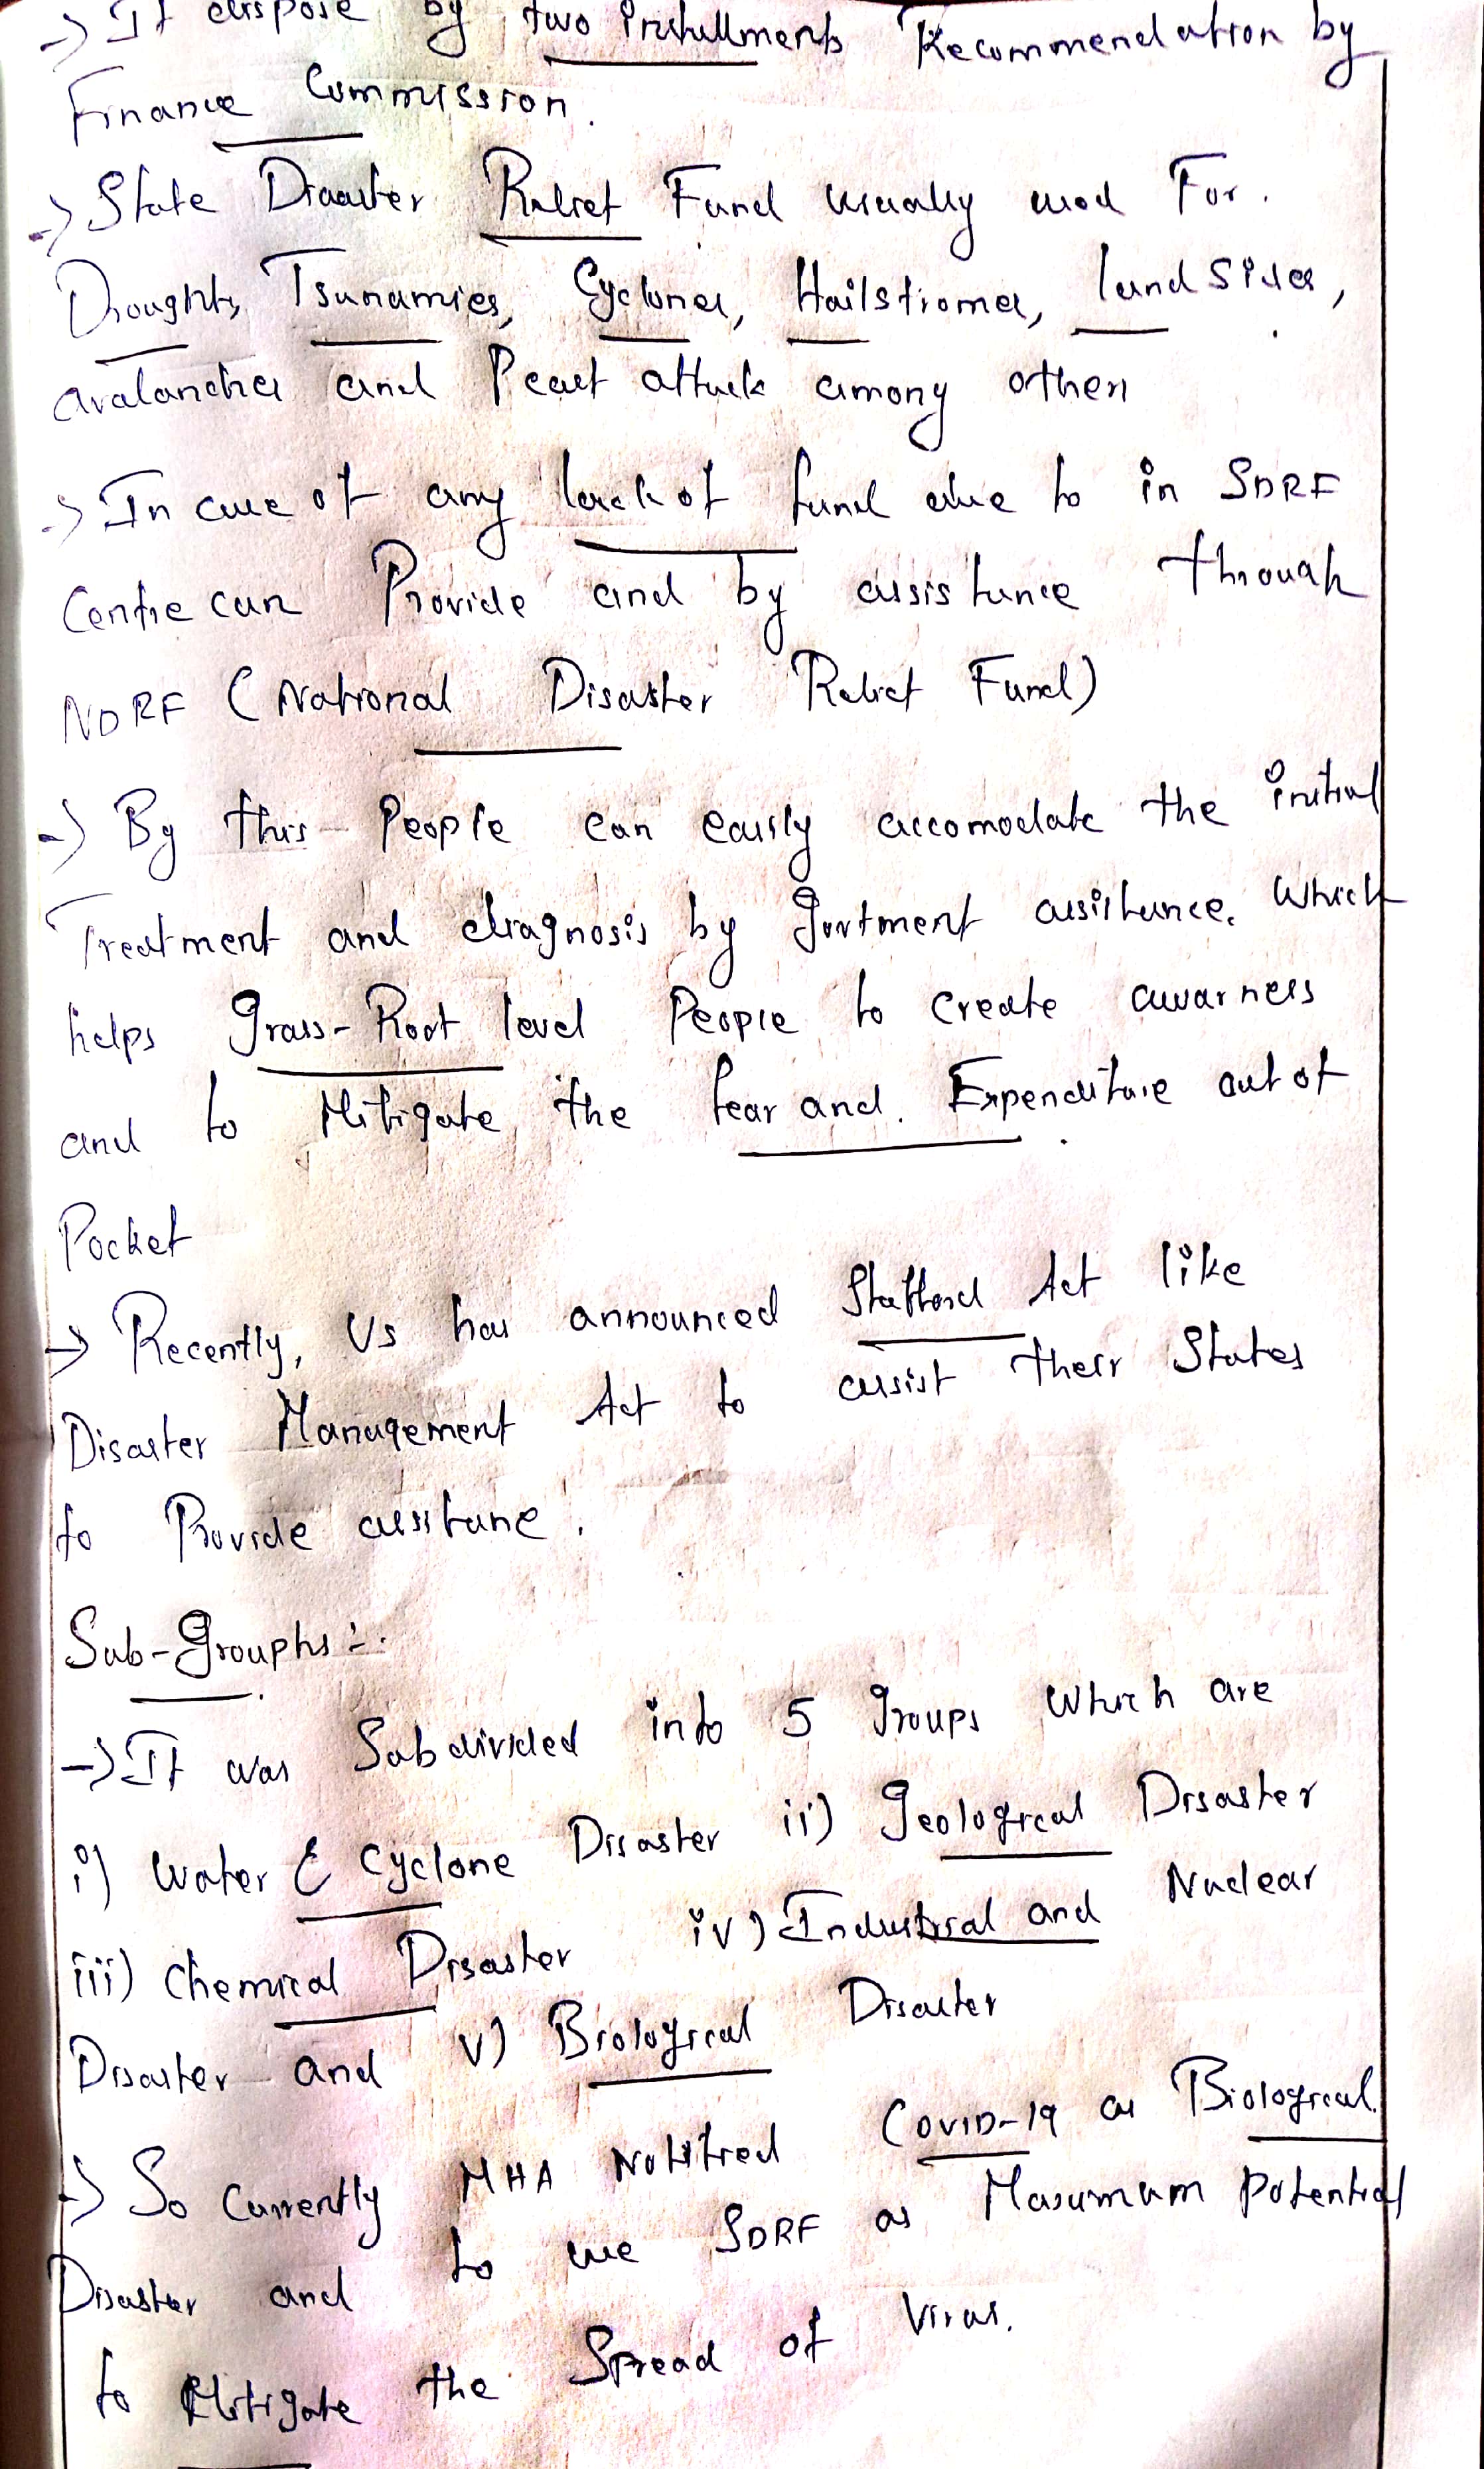 → It dispose by two installments Recommendation by
Finance Commission.
→ State Disaster Relief Fund usually used For.
Droughts, Tsunamies, Cyclones, Hailstromes, land Sides,
avalanches and Peast attack among others
→ In case of any lack of fund due to in SDRF
Centre can Provide and by assistance through
NDRF (National Disaster Relief Fund)
→ By this People can easily accomodate the initial
Treatment and diagnosis by assistance. Which
helps Grass-Root level People to create awarness
and to Mitigate the fear and. Expenditure out of
Pocket
→ Recently, US has announced Stafford Act like
Disaster Management Act to assist their States
to Provide assistane.
Sub-Grouphs :-
→ It was Subdivided into 5 Groups Which are
i) Water & Cyclone Disaster ii) Geological Disaster
iii) Chemical Disaster iv) Industrial and Nuclear
Disaster and v) Biological Disaster
→ So Currently MHA Notified COVID-19 as Biological
Disaster and to use SDRF as Maxumum Potential
to Mitigate the Spread of Virus.